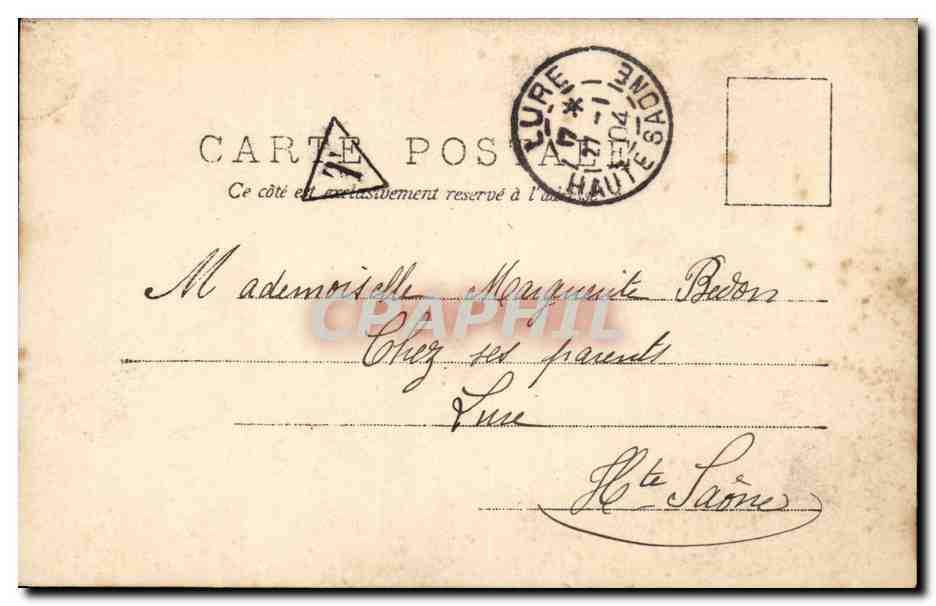 LURE
17 * 4 -1 04
HAUTE SAONE
CARTE POSTALE
T
Ce côté est exclusivement reservé à l'adresse
Mademoiselle Marguerite Bedon
CPAPHIL
Chez ses parents
Lure
Hte Saône